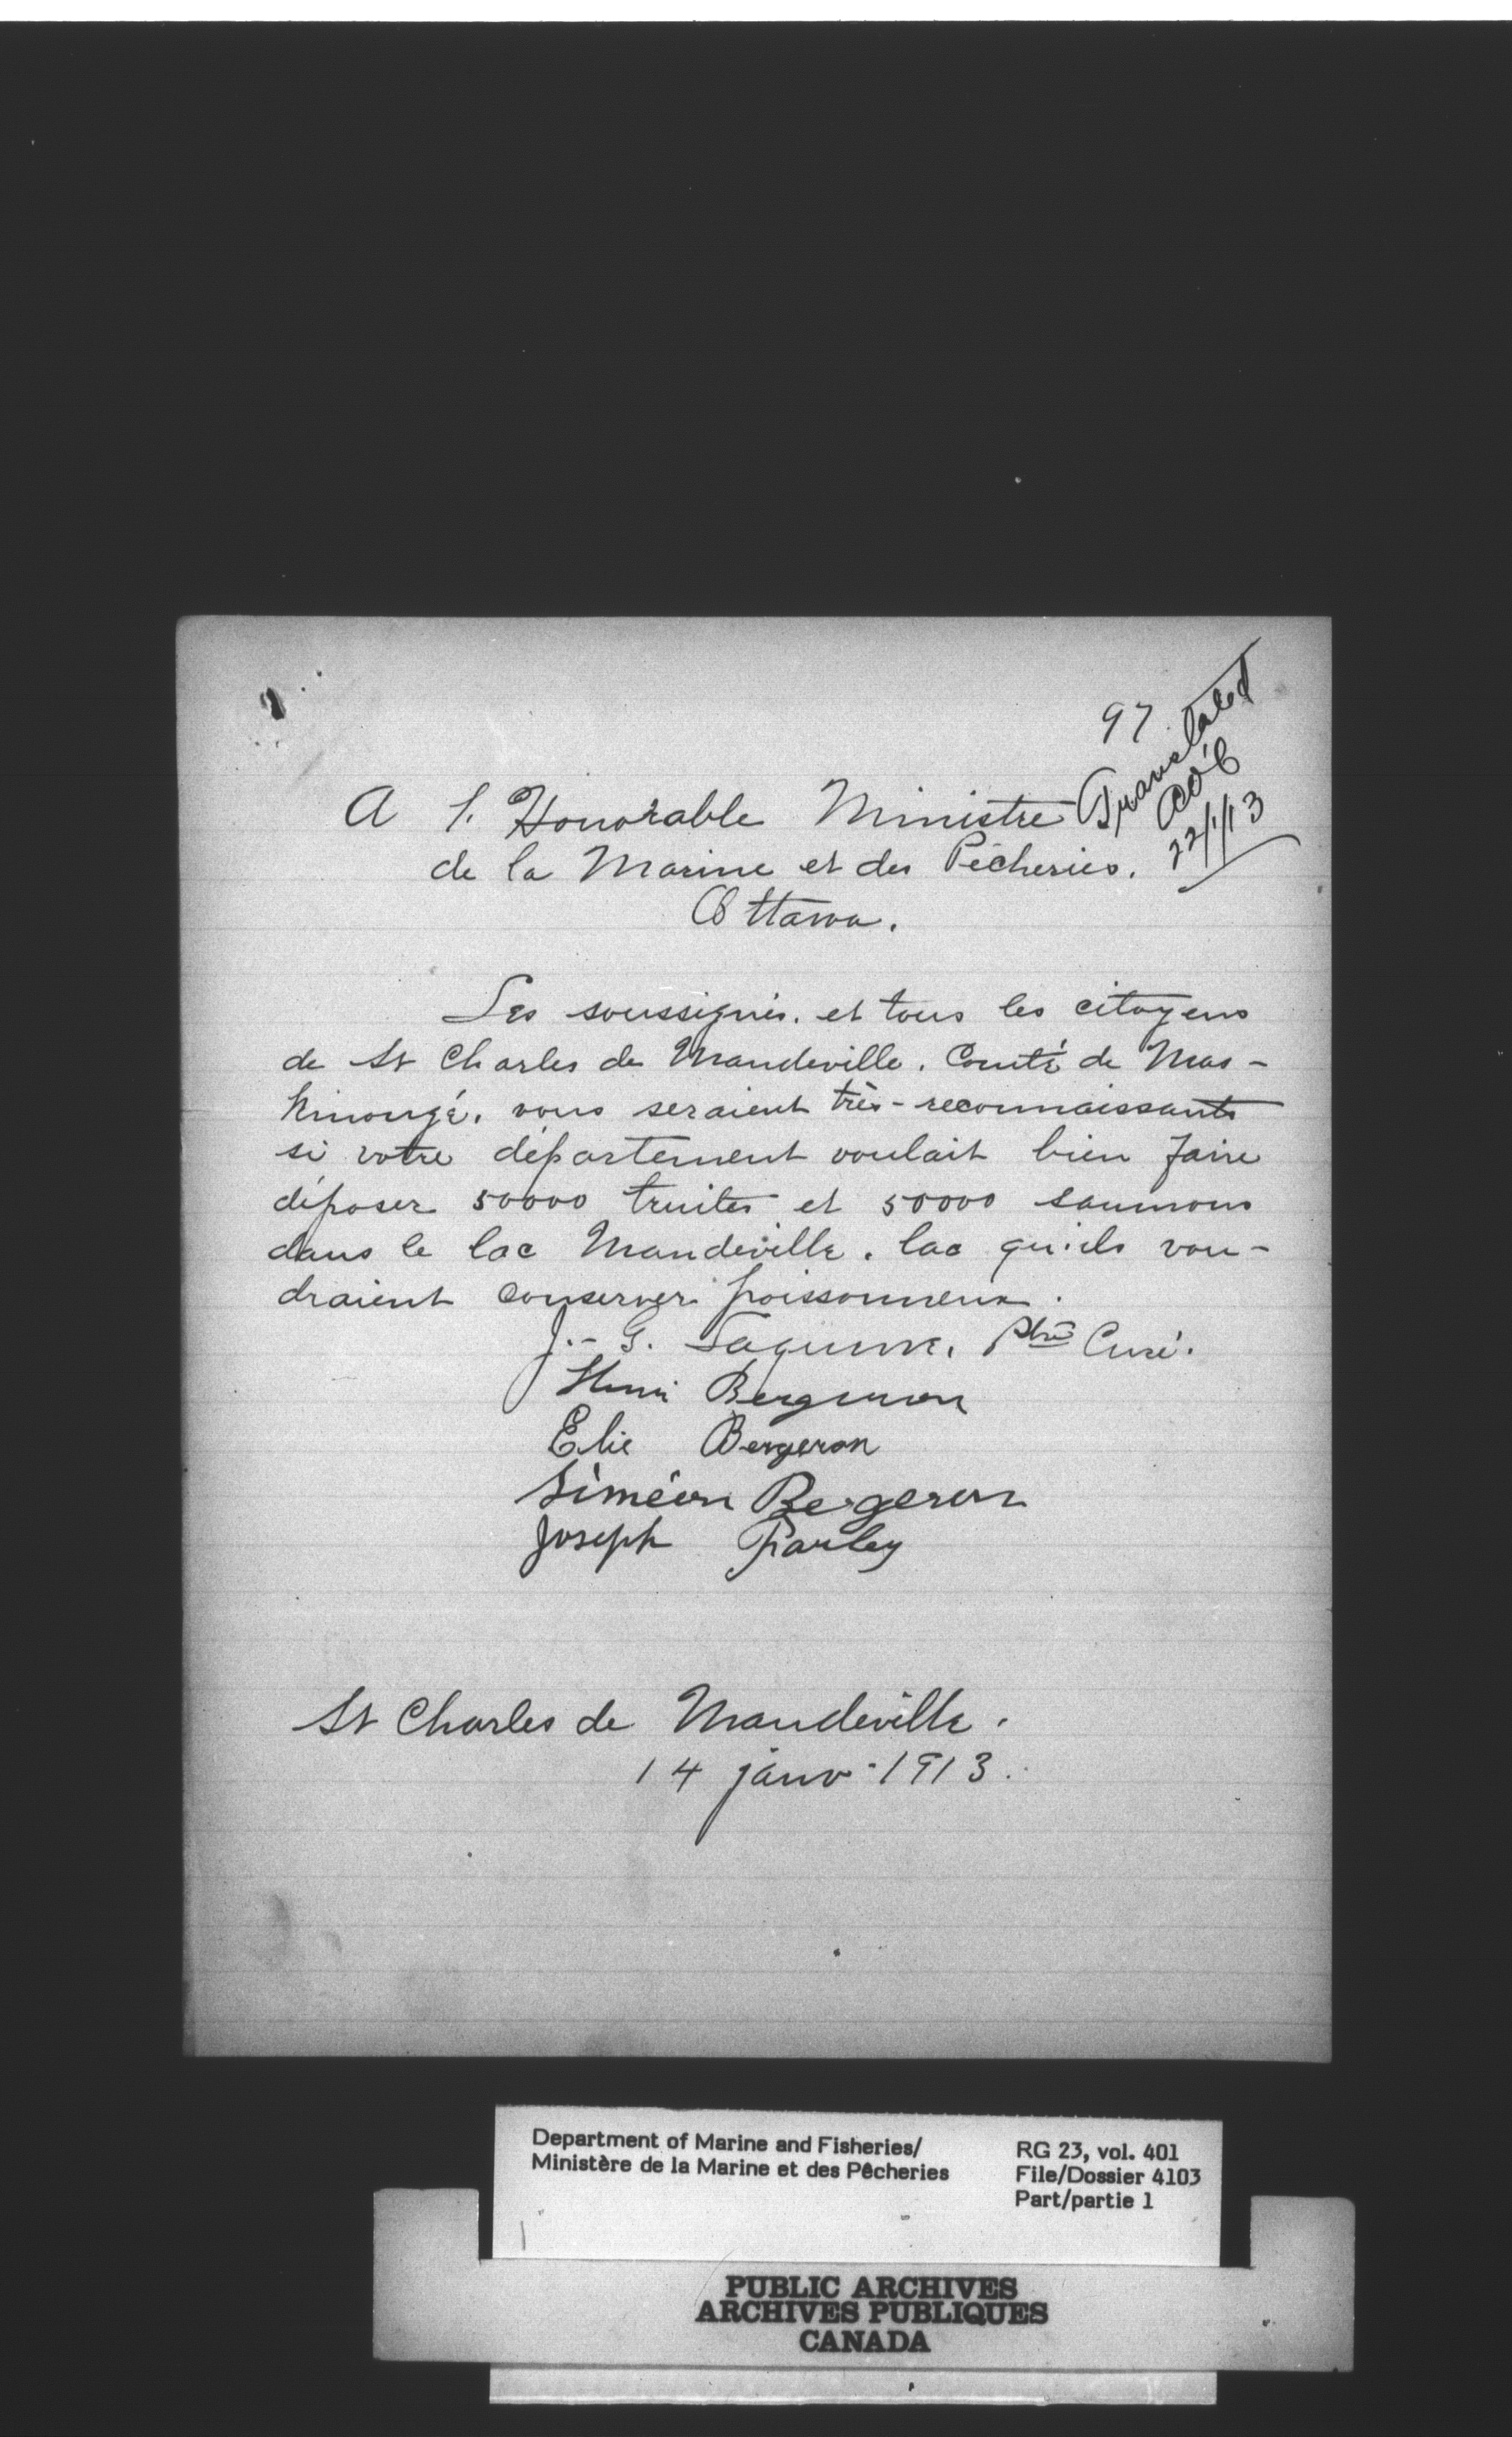 97
Translated
22/1/13
A l'Honorable Ministre
de la Marine et des Pêcheries.
Ottawa.
Les soussignés. et tous les citoyens
de St Charles de Mandeville. Comté de Mas-
kinongé. vous seraient très-reconnaissants
si votre département voulait bien faire
déposer 50000 truites et 50000 saumons
dans le lac Mandeville. lac qu'ils vou-
draient conserver poissonneux.
J.-G. Ptre Curé.
Henri Bergeron
Elie Bergeron
Siméon Bergeron
Joseph Farley
St Charles de Mandeville.
14 janv. 1913.
Department of Marine and Fisheries/
Ministère de la Marine et des Pêcheries
RG 23, vol. 401
File/Dossier 4103
Part/partie 1
PUBLIC ARCHIVES
ARCHIVES PUBLIQUES
CANADA